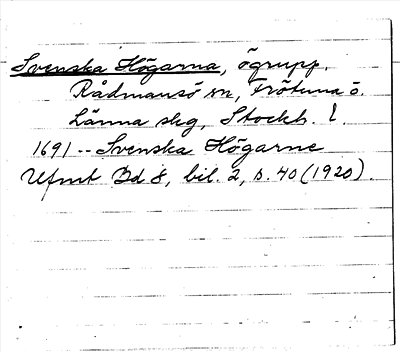 Svenska Högarna, ögrupp.
Rådmansö sn, Frötuna o.
Länna slg, Stockh. l.
1691 -- Svenska Högarne
Ufmt Bd 8, bil. 2, s. 40 (1920).